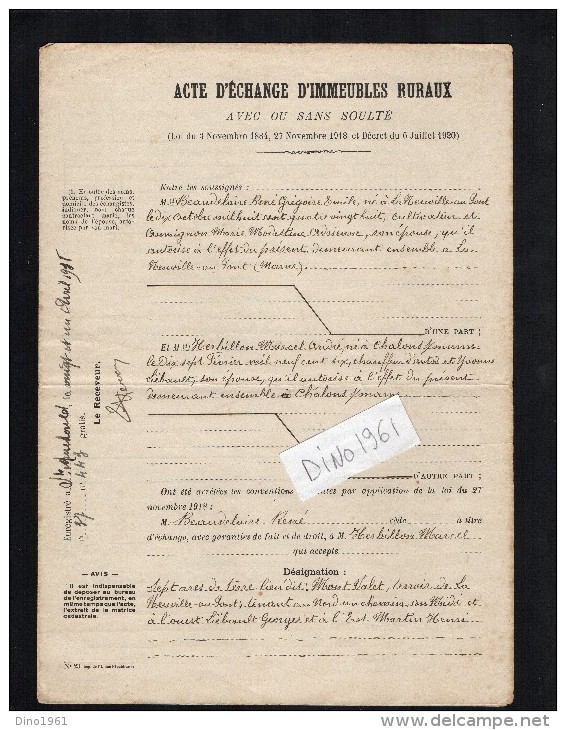 ACTE D'ÉCHANGE D'IMMEUBLES RURAUX
AVEC OU SANS SOULTE
(Loi du 3 Novembre 1884, 27 Novembre 1918 et Décret du 6 Juillet 1920)
Entre les soussignés :
M. Beaudelaire René Grégoire Emile, né à La Neuville-au-Pont
le dix Octobre mil huit cent quatre vingt huit, cultivateur et
Marie Modestine son épouse, qu'il
autorise à l'effet du présent demeurant ensemble à La
Neuville-au-Pont (Marne)
D'UNE PART ;
Et M. Herbillon Marcel André, né à Chalons s/marne
le Dix sept Février mil neuf cent six, chauffeur d'autos et Yvonne
Liébault, son épouse, qu'il autorise à l'effet du présent
demeurant ensemble à Châlons s/marne
D'AUTRE PART ;
Ont été arrêtées les conventions par application de la loi du 27
novembre 1918 :
M. Beaudelaire René cède à titre
d'échange, avec garantie de fait et de droit, à M. Herbillon Marcel
qui accepte
Désignation :
Sept ares de terre lieu dit : Mont Valet, terroir de La
Neuville-au-Pont, tenant au Nord un chemin, au Midi et
à l'ouest Liébault Georges et à l'Est Martin Henri
(1) Enoncer les noms,
prénoms, profession et
domicile des échangistes,
indiquer, pour chaque
contractant marié, les
noms de l'épouse, auto-
risée par son mari.
Enregistré à Ste Menehould, le vingt et un Avril 1931
F° 87 n° 443 gratis.
Le Receveur,
— AVIS —
Il est indispensable
de déposer au bureau
de l'enregistrement, en
même temps que l'acte,
l'extrait de la matrice
cadastrale.
N° 23
DINO1961
Dino1961
delcampe.net